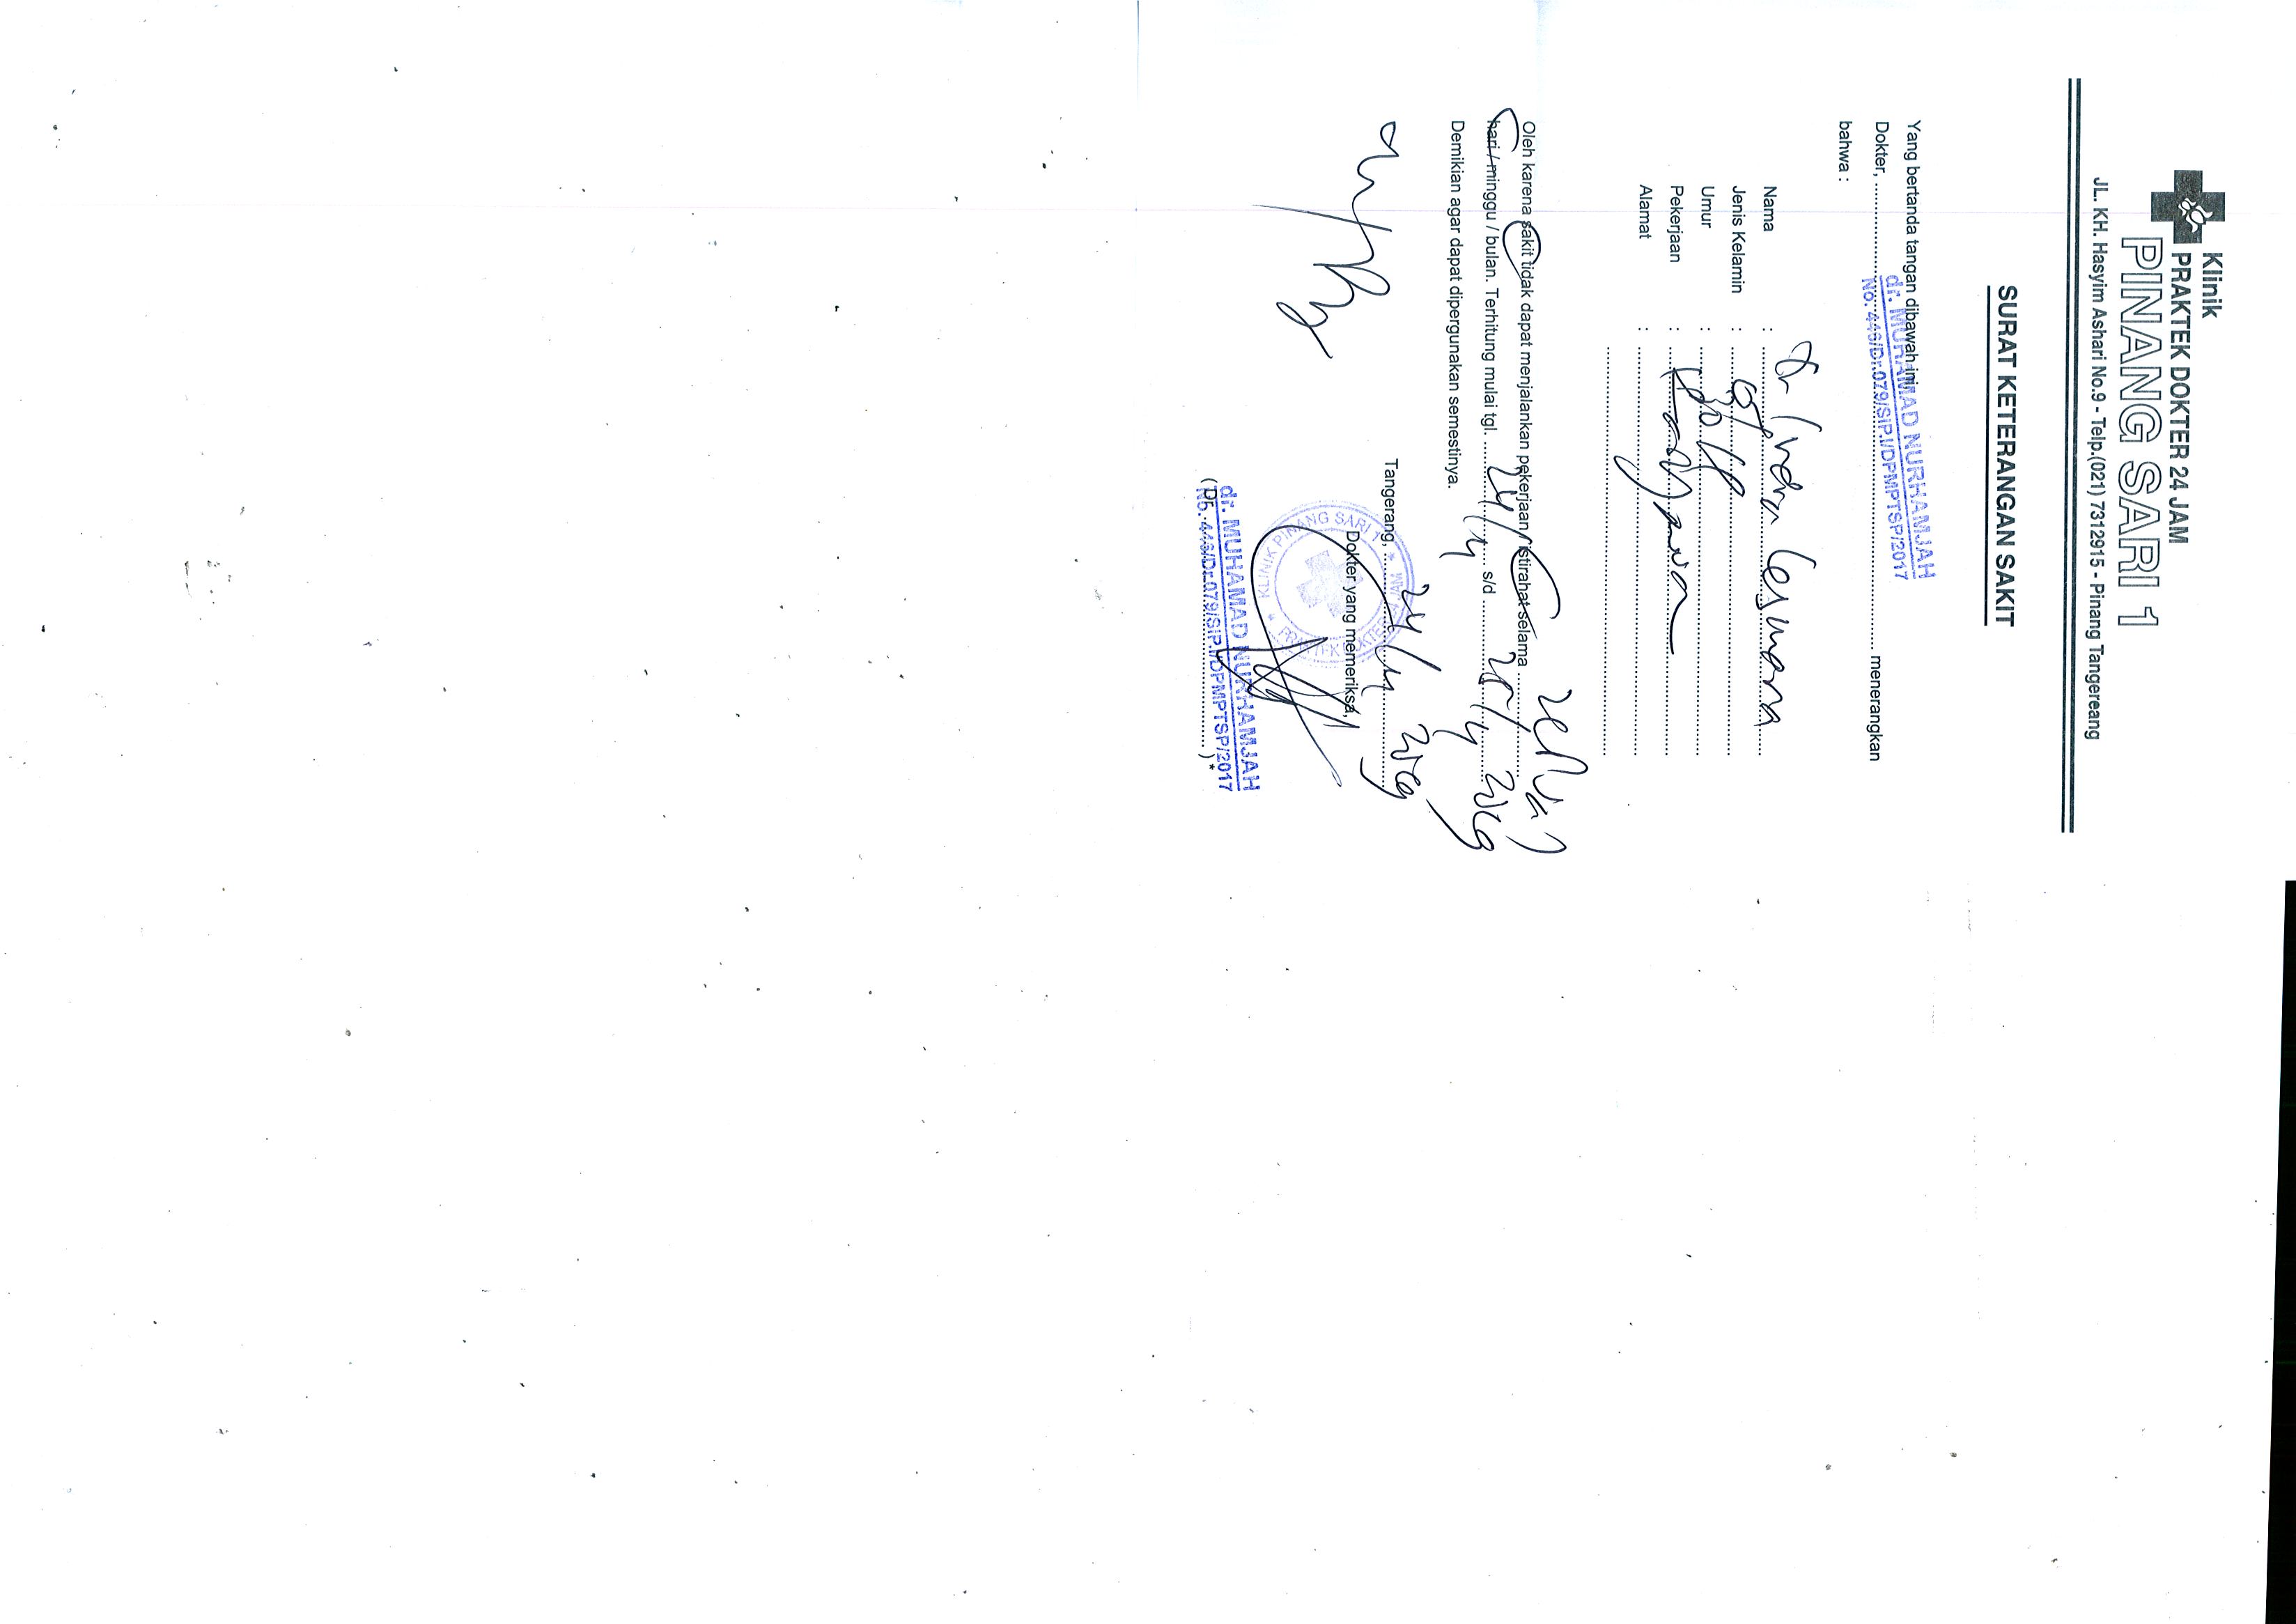 Klinik
PRAKTEK DOKTER 24 JAM
PINANG SARI 1
JL. KH. Hasyim Ashari No.9 - Telp.(021) 7312915 - Pinang Tangereang
SURAT KETERANGAN SAKIT
Yang bertanda tangan dibawah ini,
dr. MUHAMAD NURHAMJAH
No. 446/Dr.079/SIP.I/DPMPTSP/2017
Dokter, menerangkan
bahwa :
Nama : Indra Lesmana
Jenis Kelamin :
Umur : 30 th
Pekerjaan : Karyawan
Alamat :
Oleh karena sakit tidak dapat menjalankan pekerjaan / istirahat selama
hari / minggu / bulan. Terhitung mulai tgl. 24/4 s/d 25/4
Demikian agar dapat dipergunakan semestinya.
Tangerang, 24/4
Dokter yang memeriksa,
KLINIK PINANG SARI 1 * PRAKTEK DOKTER 24 JAM *
dr. MUHAMAD NURHAMJAH
No. 446/Dr.079/SIP.I/DPMPTSP/2017
( Dr. ) *